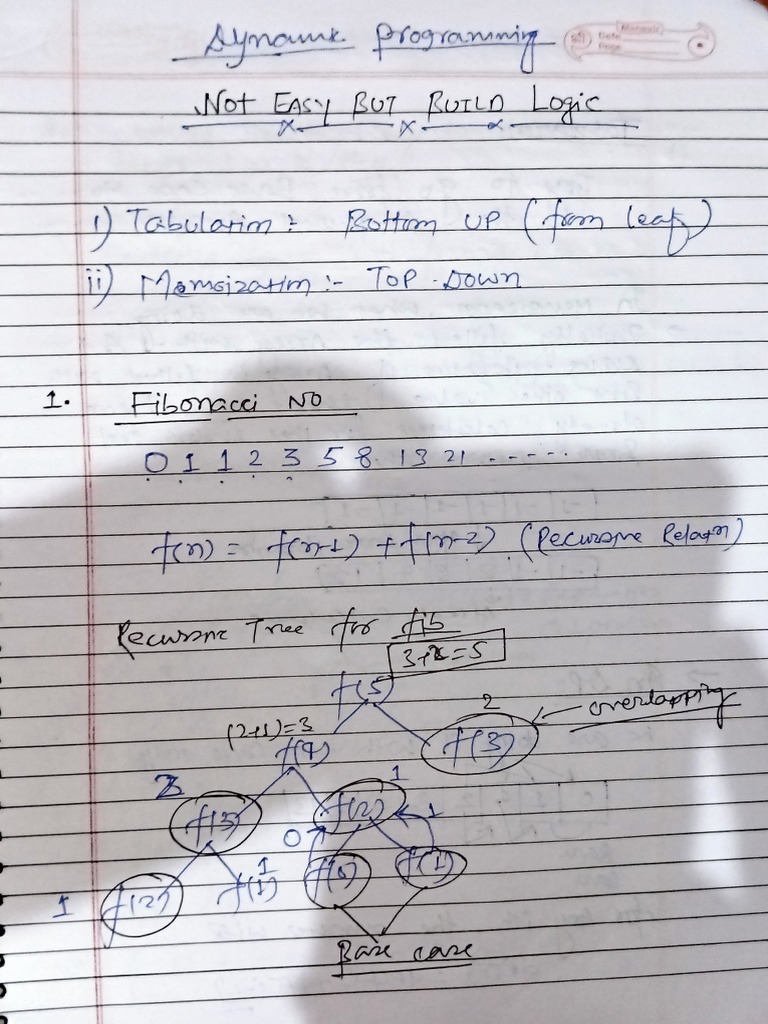 Dynamic Programming
Not EASY BUT BUILD Logic
i) Tabulation :- Bottom UP (from leaf)
ii) Memoization :- TOP-DOWN
1. Fibonacci NO
0 1 1 2 3 5 8 13 21 ......
f(n) = f(n-1) + f(n-2) (Recursive Relatn)
Recursive Tree for fib
3+2=5
f(5)
(2+1)=3 2 overlapping
f(4) f(3)
2 1
f(3) f(2)
0 1
1 f(2) 1 f(1) f(0) f(1)
Base case